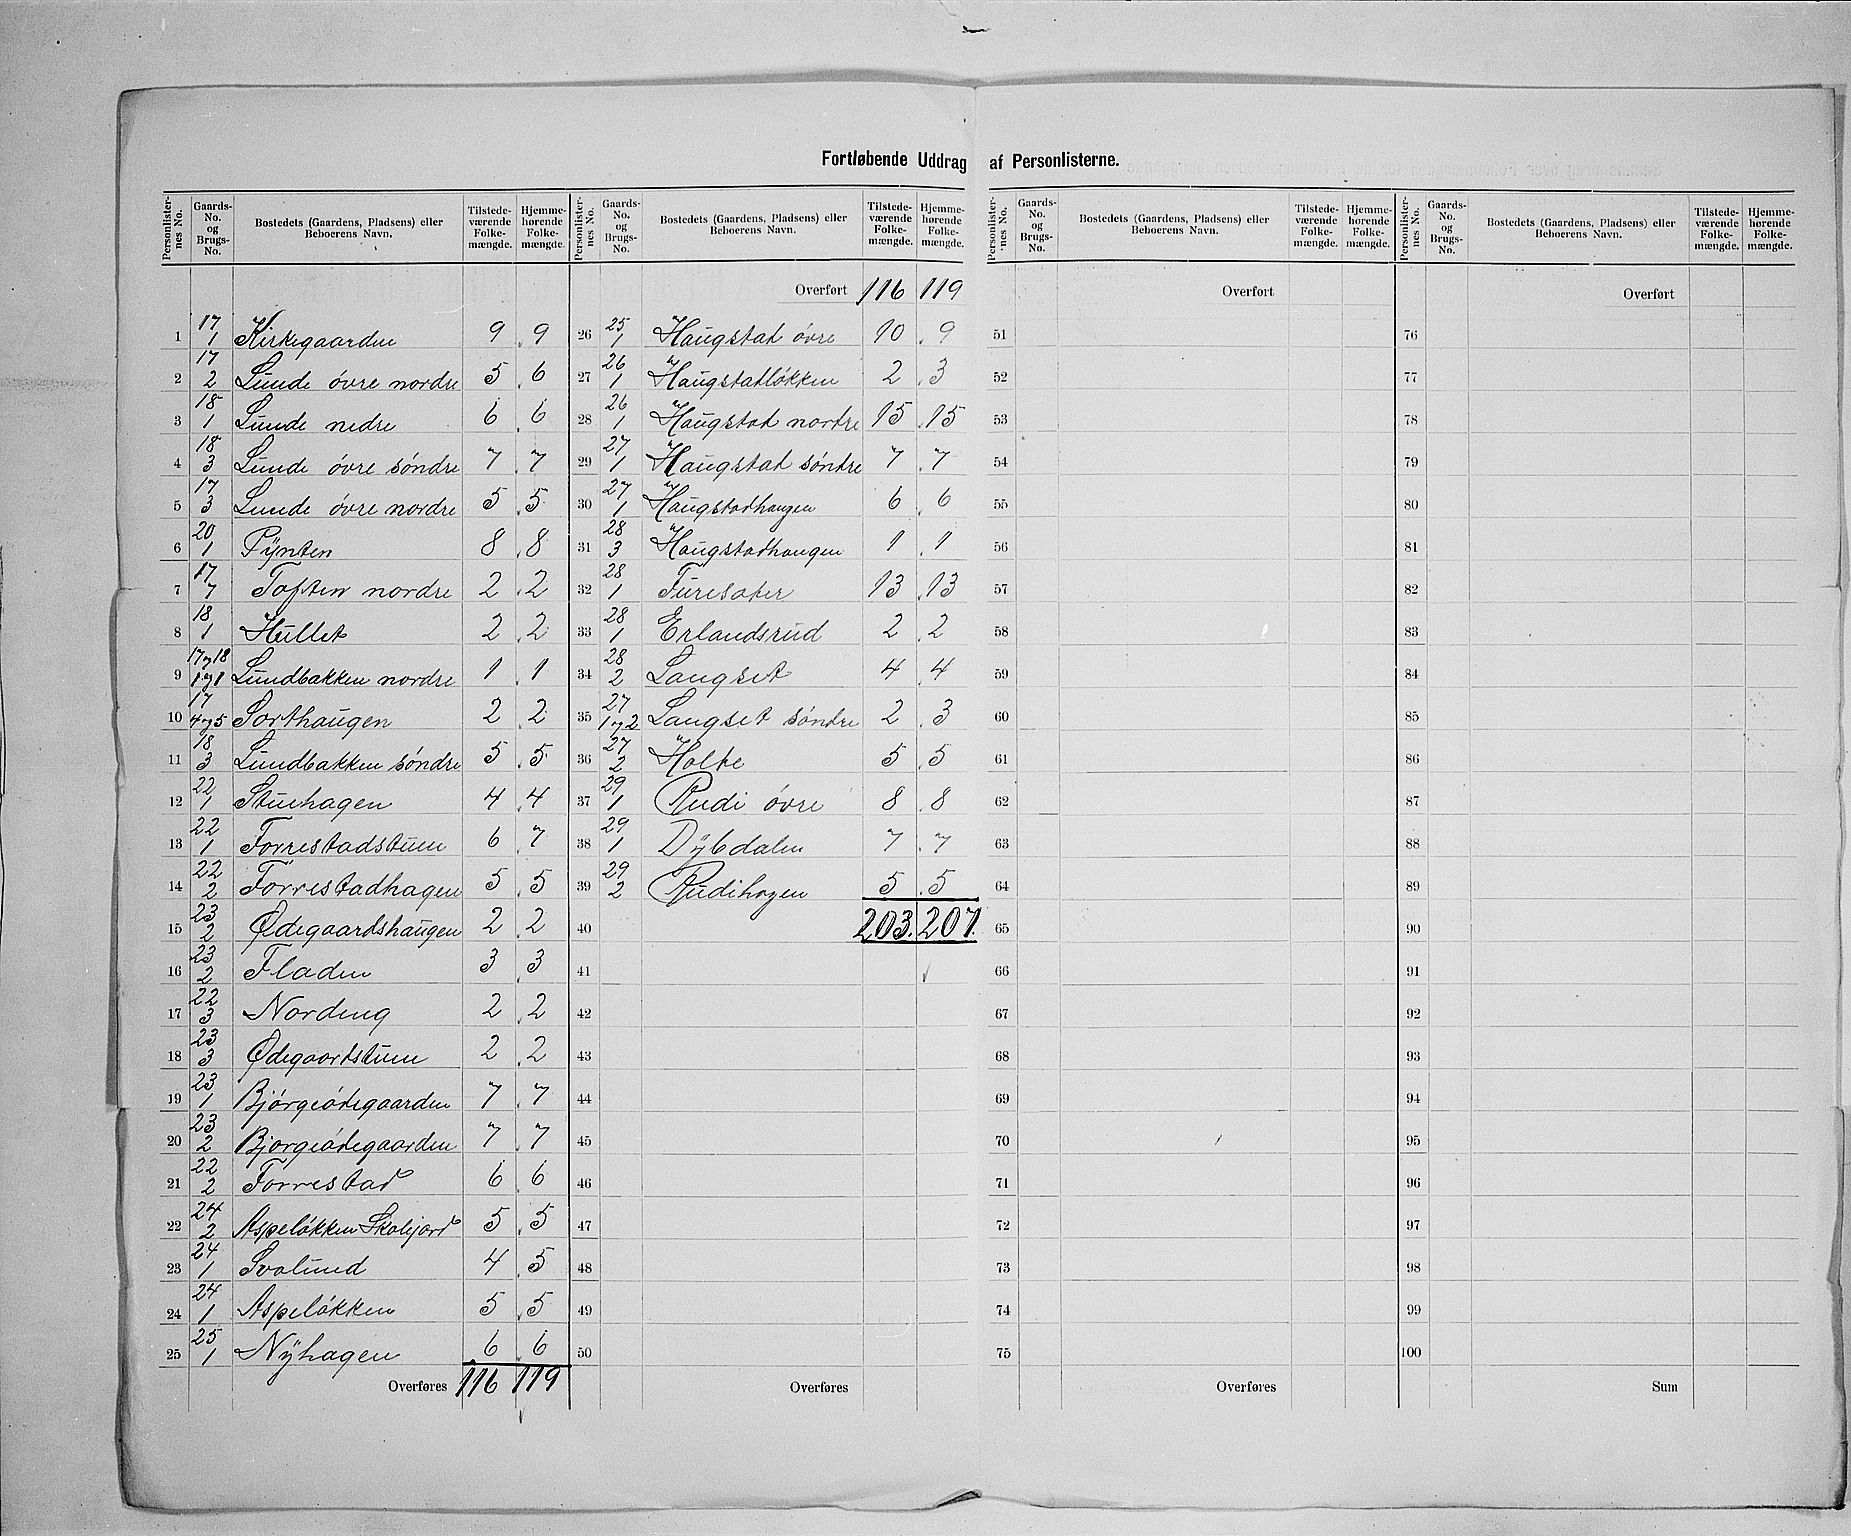 Fortløbende Uddrag af Personlisterne.
Personlister-nes No. | Gaards-No. og Brugs-No. | Bostedets (Gaardens, Pladsens) eller Beboerens Navn. | Tilstede-værende Folke-mængde. | Hjemme-hørende Folke-mængde.
1 | 17 1 | Kirkegaarden | 9 | 9
2 | 17 2 | Lunde øvre nordre | 5 | 6
3 | 18 1 | Lunde nedre | 6 | 6
4 | 18 3 | Lunde øvre søndre | 7 | 7
5 | 17 3 | Lunde øvre nordre | 5 | 5
6 | 20 1 | Pynten | 8 | 8
7 | 17 7 | Toften nordre | 2 | 2
8 | 18 1 | Hullet | 2 | 2
9 | 17 og 18 1 og 1 | Lundbakken nordre | 1 | 1
10 | 17 4 og 5 | Sorthaugen | 2 | 2
11 | 18 3 | Lundbakken søndre | 5 | 5
12 | 22 1 | Stuehagen | 4 | 4
13 | 22 1 | Forrestadstuen | 6 | 7
14 | 22 2 | Forrestadhagen | 5 | 5
15 | 23 2 | Ødegaardshaugen | 2 | 2
16 | 23 2 | Fladen | 3 | 3
17 | 22 3 | Nordeng | 2 | 2
18 | 23 3 | Ødegaardstuen | 2 | 2
19 | 23 1 | Bjørgeødegaarden | 7 | 7
20 | 23 2 | Bjørgeødegaarden | 7 | 7
21 | 22 2 | Forrestad | 6 | 6
22 | 24 2 | Aspeløkken Skolejord | 5 | 5
23 | 24 1 | Svelund | 4 | 5
24 | 24 1 | Aspeløkken | 5 | 5
25 | 25 1 | Nyhagen | 6 | 6
Overføres 116 119
Personlister-nes No. | Gaards-No. og Brugs-No. | Bostedets (Gaardens, Pladsens) eller Beboerens Navn. | Tilstede-værende Folke-mængde. | Hjemme-hørende Folke-mængde.
Overført 116 119
26 | 25 1 | Haugstad øvre | 10 | 9
27 | 26 1 | Haugstadløkken | 2 | 3
28 | 26 1 | Haugstad nordre | 15 | 15
29 | 27 1 | Haugstad søndre | 7 | 7
30 | 27 1 | Haugstadhaugen | 6 | 6
31 | 28 3 | Haugstadhaugen | 1 | 1
32 | 28 1 | Furesæter | 13 | 13
33 | 28 1 | Erlandsrud | 2 | 2
34 | 28 2 | Langset | 4 | 4
35 | 27 1 og 2 | Langset søndre | 2 | 3
36 | 27 2 | Holte | 5 | 5
37 | 29 1 | Rudi øvre | 8 | 8
38 | 29 1 | Dybdalen | 7 | 7
39 | 29 2 | Rudihagen | 5 | 5
40 203. 207.
41
42
43
44
45
46
47
48
49
50
Overføres
Personlister-nes No. | Gaards-No. og Brugs-No. | Bostedets (Gaardens, Pladsens) eller Beboerens Navn. | Tilstede-værende Folke-mængde. | Hjemme-hørende Folke-mængde.
Overført
51
52
53
54
55
56
57
58
59
60
61
62
63
64
65
66
67
68
69
70
71
72
73
74
75
Overføres
Personlister-nes No. | Gaards-No. og Brugs-No. | Bostedets (Gaardens, Pladsens) eller Beboerens Navn. | Tilstede-værende Folke-mængde. | Hjemme-hørende Folke-mængde.
Overført
76
77
78
79
80
81
82
83
84
85
86
87
88
89
90
91
92
93
94
95
96
97
98
99
100
Sum